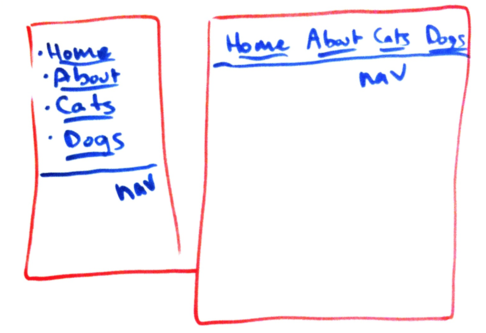 · Home
· About
· Cats
· Dogs
nav
Home About Cats Dogs
nav